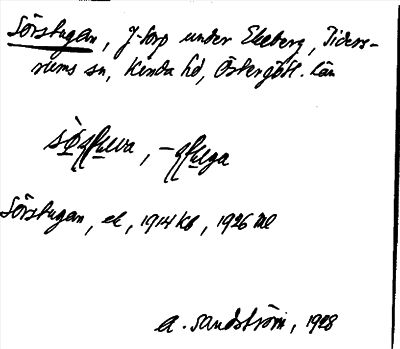 Sörstugan, J-torp under Ekeberg, Tiders-
rums sn, Kinda hd, Östergötl. län
Sörstugan, ek, 1914 kb, 1926 ml
A. Sandström, 1928